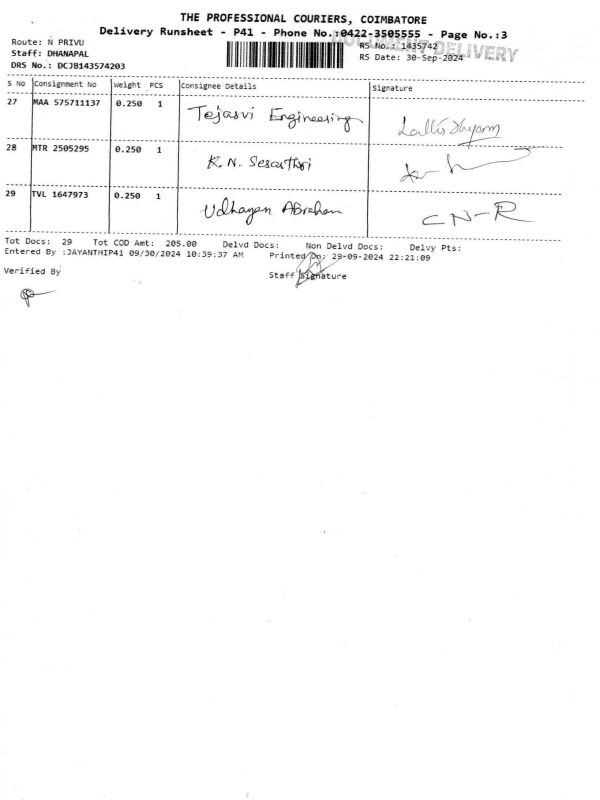 THE PROFESSIONAL COURIERS, COIMBATORE
Delivery Runsheet - P41 - Phone No.:0422-3505555 - Page No.:3
DOCUMENT DELIVERY
Route: N PRIVU
RS No.: 1435742
Staff: DHANAPAL
RS Date: 30-Sep-2024
DRS No.: DCJB143574203
S No Consignment No Weight PCS Consignee Details Signature
27 MAA 575711137 0.250 1 Tejasvi Engineering
28 MTR 2505295 0.250 1 K.N. Sesathri
29 TVL 1647973 0.250 1 Udhayan Abraham CN-R
Tot Docs: 29 Tot COD Amt: 205.00 Delvd Docs: Non Delvd Docs: Delvy Pts:
Entered By :JAYANTHIP41 09/30/2024 10:39:37 AM Printed On: 29-09-2024 22:21:09
Verified By
Staff Signature